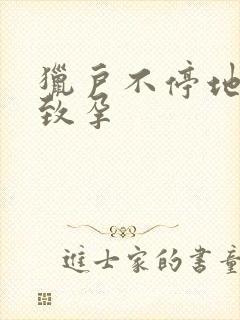 獵戶不停地
致孕
進士家的書童